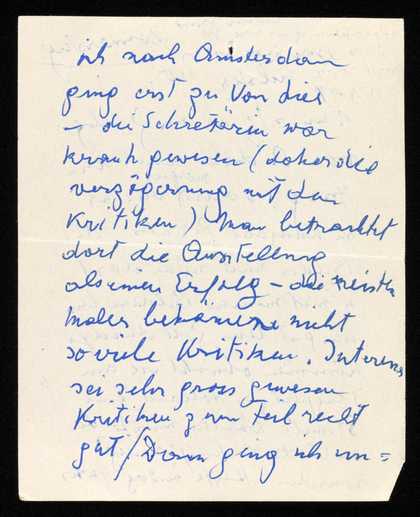 ich nach Amsterdam
ging erst zu Von
– die Sekretärin war
krank gewesen (daher die
verzögerung mit den
Kritiken) Man betrachtet
dort die Ausstellung
als einen Erfolg – die meisten
maler bekämen nicht
so viele Kritiken. Interesse
sei sehr gross gewesen
Kritiken zum Teil recht
gut / Dann ging ich un=